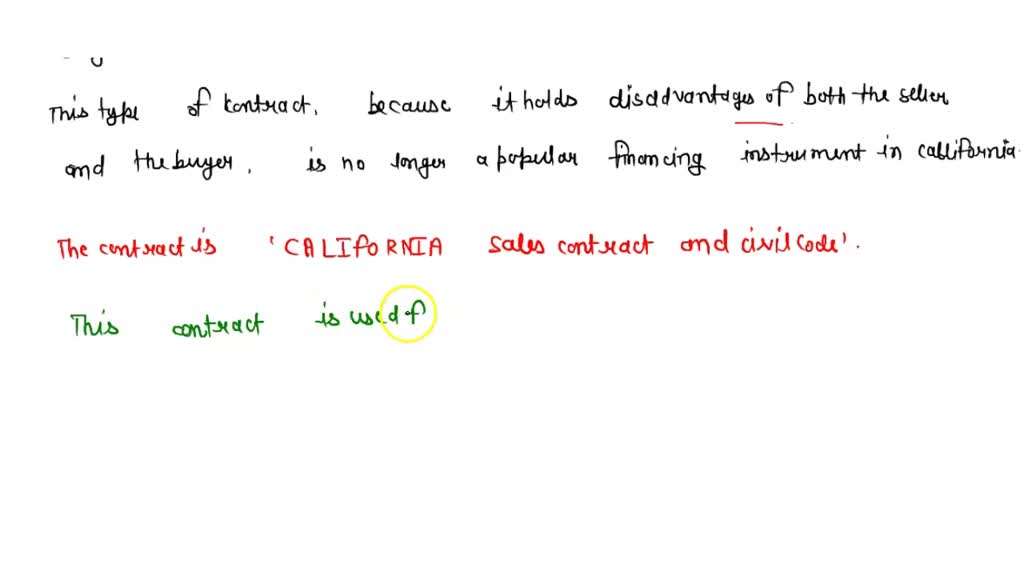 This type of kontract, because it holds disadvantages of both the seller
and the buyer, is no longer a popular financing instrument in california.
The contract is 'CALIFORNIA sales contract and civil code'.
This contract is used f